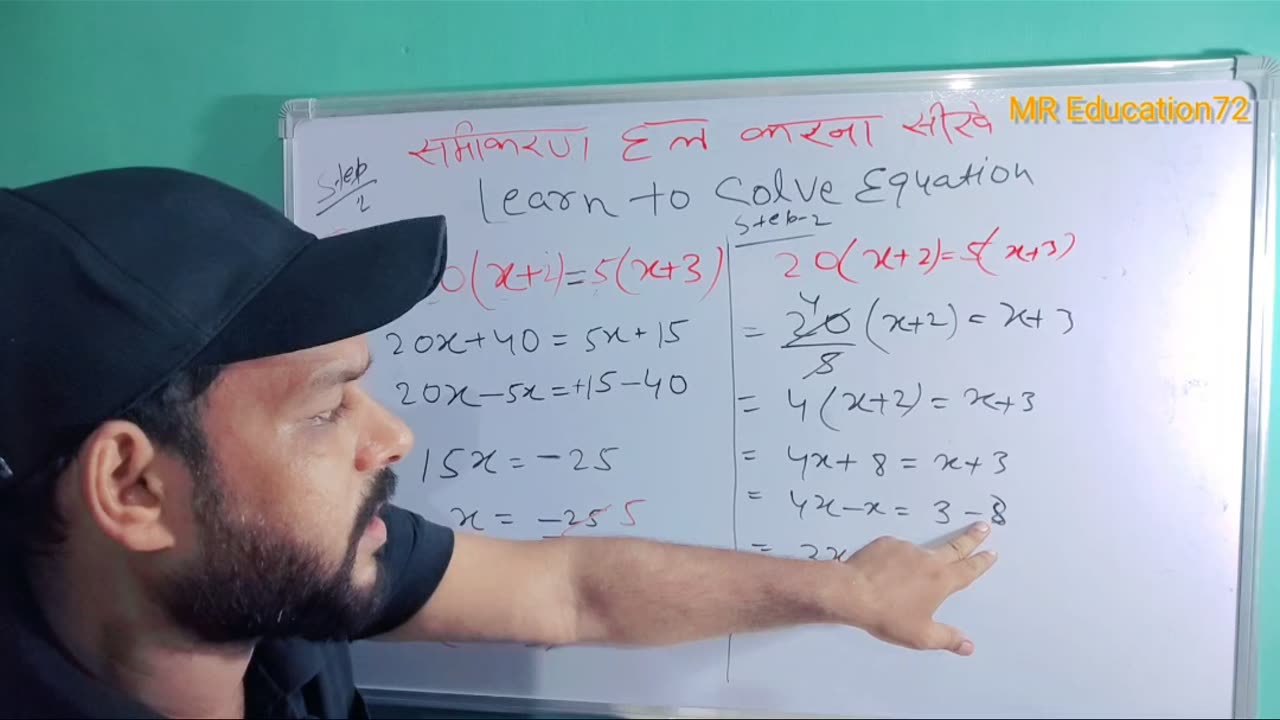 MR Education72
समीकरण हल करना सीखे
Step
2
Learn to Solve Equation
0(x+2)=5(x+3)
20x+40=5x+15
20x-5x=+15-40
15x=-25
x=-25 5
Step-2
20(x+2)=5(x+3)
4
= 20 (x+2)=x+3
5
= 4(x+2)=x+3
= 4x+8=x+3
= 4x-x=3-8
= 3x